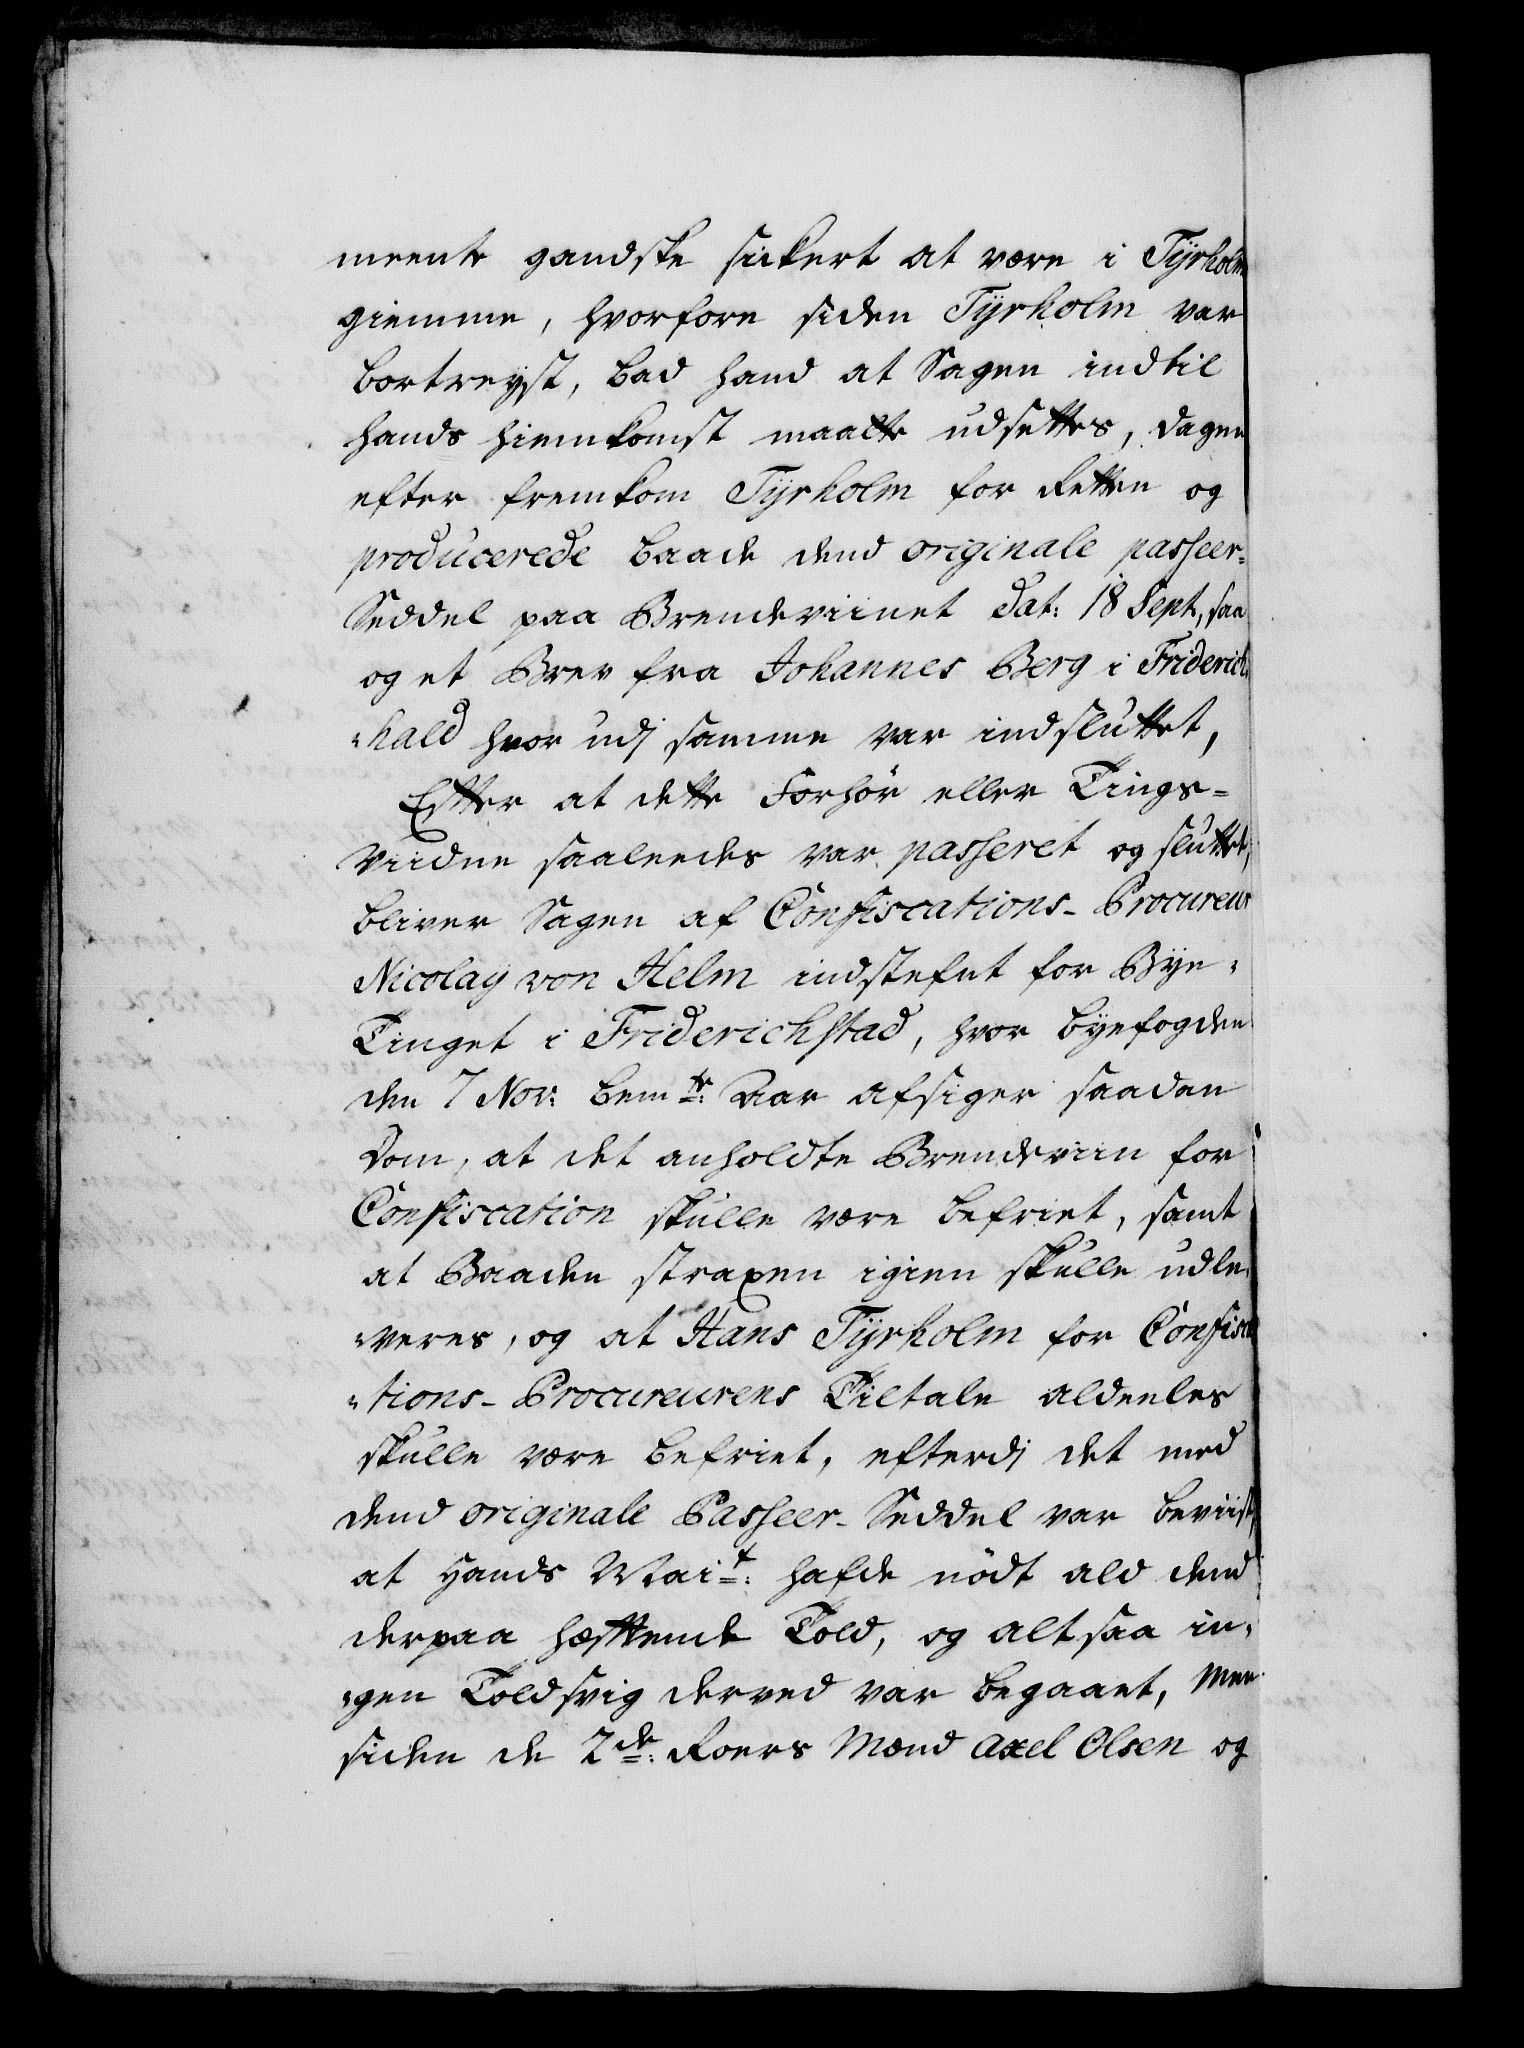 meente gandske sickert at være i Tÿrholm
giemme, hvorfore siden Tÿrholm var
bortreyst, bad hand at Sagen indtil
hands hiemkomst maatte udsettes, dagen
efter fremkom Tÿrholm for Retten og
producerede baade dend originale passeer=
Seddel paa Brendeviinet dat: 18 Sept, saa
og et Brev fra Johannes Berg i Friderich,
"hald hvor udj samme var indsluttet,
Efter at dette Forhör eller Tings=
Viidne saaleedes var passeret og sluttet,
bliver Sagen af Confiscations-Procureur
Nicolaÿ von Helm indstefnt for Bye,
Tinget i Friderichstad, hvor byefogden
den 7 Nov: bemte: Aar afsiger saadan
Dom, at det anholdte Brendeviin for
Confiscation skulle være befriet, samt
at Baaden straxen igien skulle udle,
"veres, og at Hans Tÿrholm for Confisca
"tions-Procureurens Tiltale aldeeles
skulle være befriet, efterdj det med
dend originale Passeer-Seddel var beviist,
at Hands Mait: hafde nödt ald dend
derpaa hæftende Told, og altsaa in,
"gen Toldsvig derved var begaaet, Men
siden de 2de: Roers Mænd Axel Olsen og